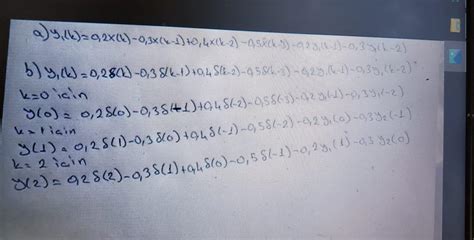 a) y₁(k)=0,2x(k)-0,3x(k-1)+0,4x(k-2)-0,5x(k-3)-0,2y(k-1)-0,3y(k-2)
b) y₁(k)=0,2δ(k)-0,3δ(k-1)+0,4δ(k-2)-0,5δ(k-3)-0,2y(k-1)-0,3y(k-2)
k=0 için
y(0)=0,2δ(0)-0,3δ(-1)+0,4δ(-2)-0,5δ(-3)-0,2y(-1)-0,3y(-2)
k=1 için
y(1)=0,2δ(1)-0,3δ(0)+0,4δ(-1)-0,5δ(-2)-0,2y₁(0)-0,3y₂(-1)
k=2 için
y(2)=0,2δ(2)-0,3δ(1)+0,4δ(0)-0,5δ(-1)-0,2y₁(1)-0,3y₂(0)